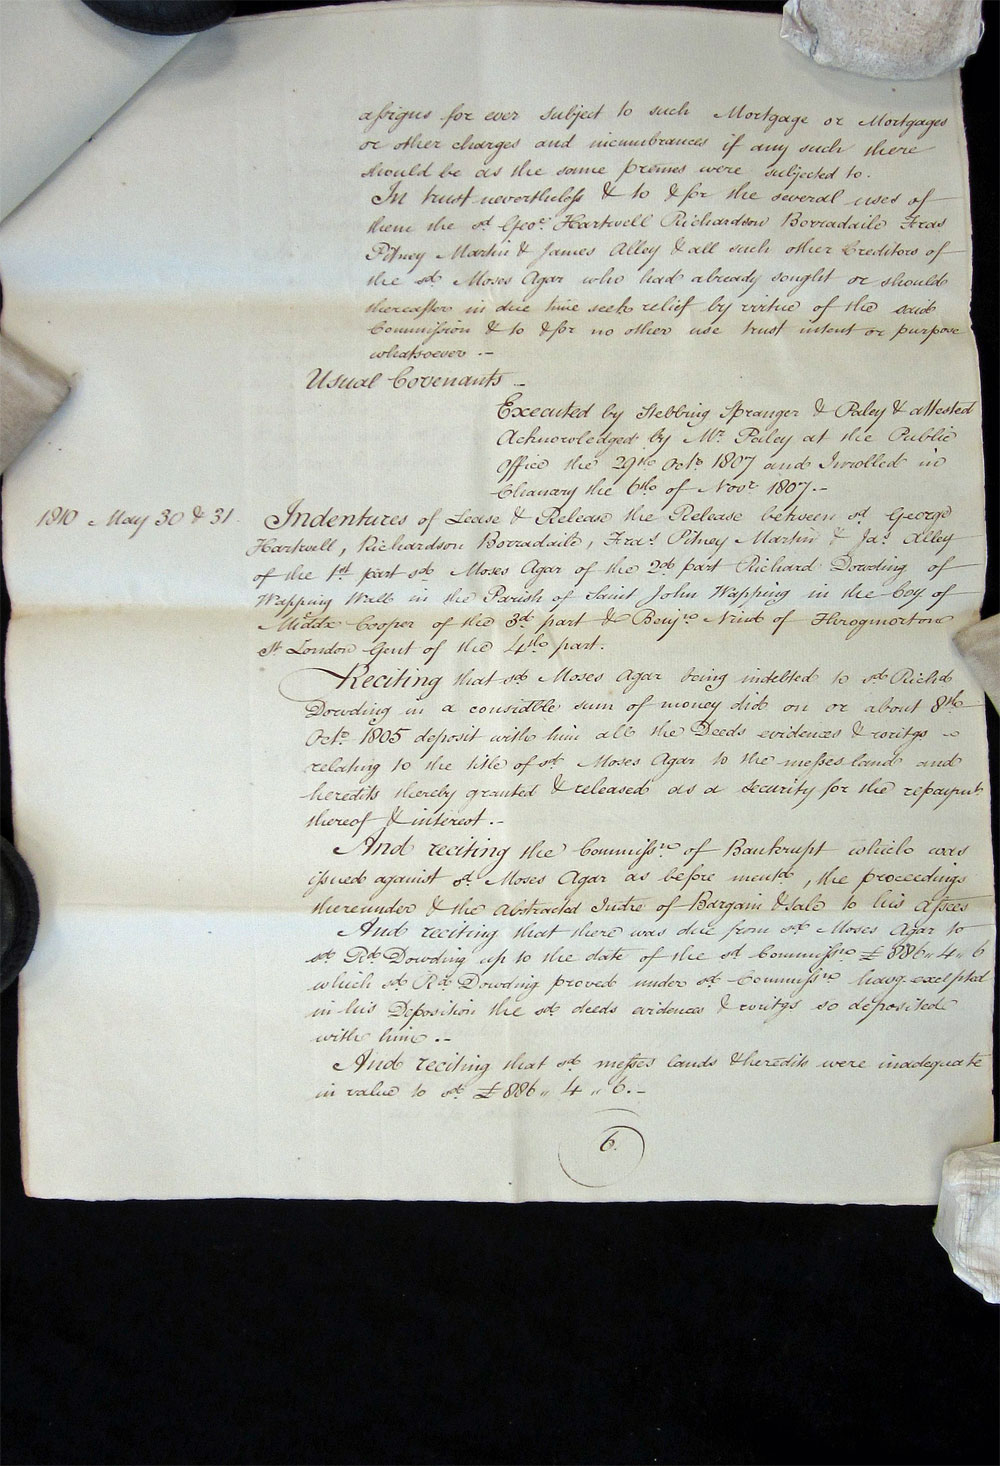 assigns for ever subject to such Mortgage or Mortgages
or other charges and incumbrances if any such there
should be as the same premes were subjected to.
In trust nevertheless & to & for the several uses of
them the sd. Geoe. Hartwell Richardson Borradaile Fras
Pitney Martin & James Alley & all such other Creditors of
the sd. Moses Agar who had already sought or should
thereafter in due time seek relief by virtue of the said
Commission & to & for no other use trust intent or purpose
whatsoever .-
Usual Covenants -
Executed by Stebbing Spranger & Paley & attested
Acknowledged by Mr. Paley at the Public
Office the 29th Octr. 1807 and Inrolled in
Chancery the 6th of Novr 1807.-
1810 May 30 & 31. Indentures of Lease & Release the Release between sd. George
Hartwell, Richardson Borradaile, Fras. Pitney Martin & Jas. Alley
of the 1st. part sd. Moses Agar of the 2d part Richard Dowding of
Wapping Wall in the Parish of Saint John Wapping in the Coy of
Middx Cooper of the 3d. part & Benjn. Nind of Throgmorton
St. London Gent of the 4th part.
Reciting that sd. Moses Agar being indebted to sd. Richd
Dowding in a considble sum of money did on or about 8th
Octr. 1805 deposit with him all the Deeds evidences & writgs -
relating to the title of sd. Moses Agar to the messes land and
heredits thereby granted & released as a security for the repaymt
thereof & interest.-
And reciting the Commissn. of Bankrupt which was
issued against sd. Moses Agar as before mentd, the proceedings
thereunder & the abstracted Indre of Bargain & Sale to his assees
And reciting that there was due from sd. Moses Agar to
sd. Rd. Dowding up to the date of the sd Commissn. £886,, 4,, 6
which sd. Rd. Dowding proved under sd. Commissn. havg. excepted
in his Deposition the sd. deeds evidences & writgs so deposited
with him .-
And reciting that sd. messes lands & heredits were inadequate
in value to sd. £886 ,, 4 ,, 6.-
6.